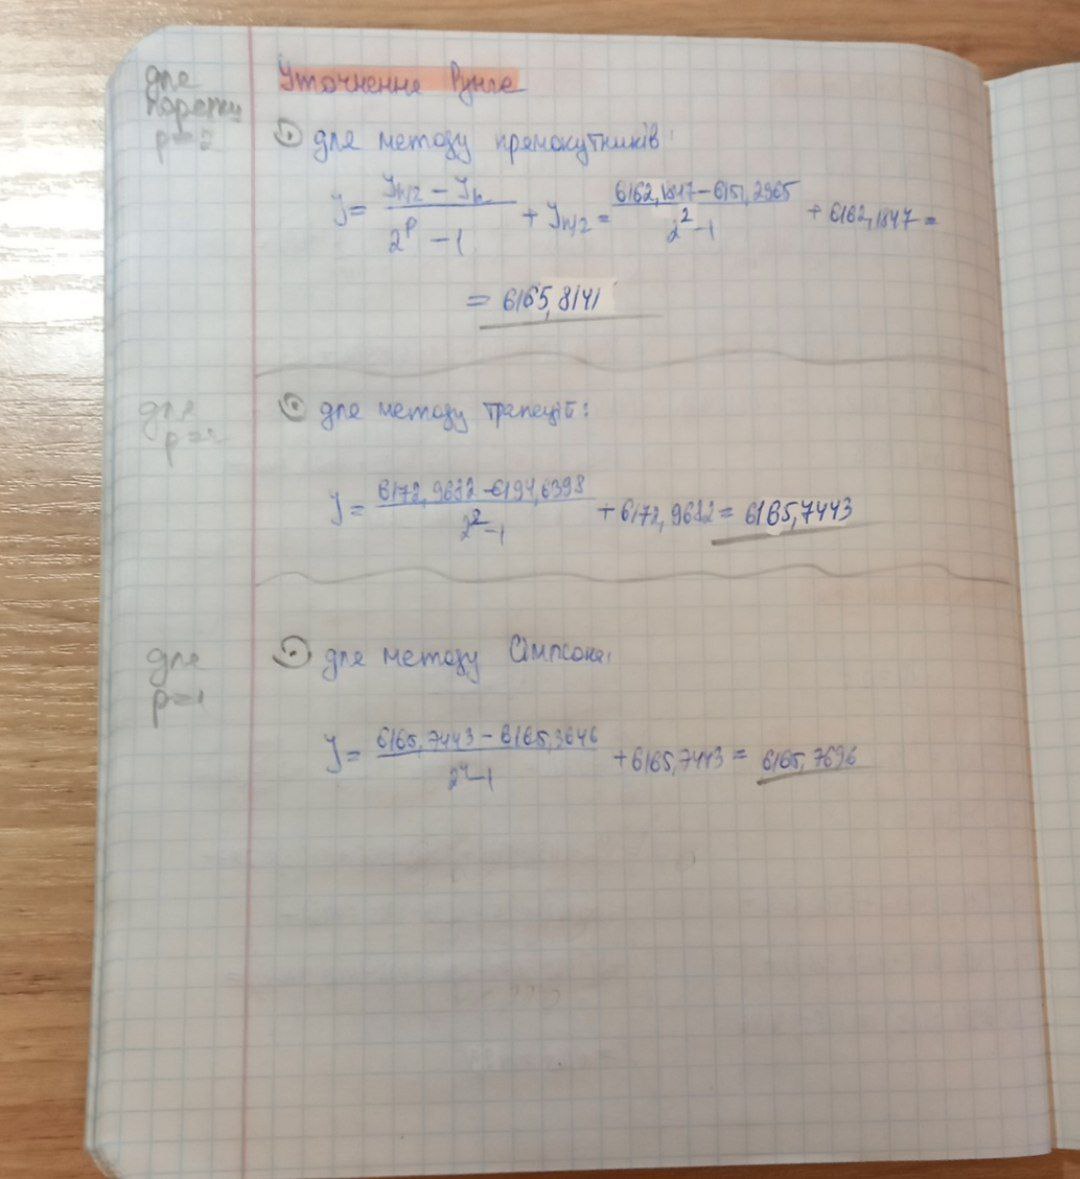 Уточнення Рунге
для
порядку
p=2
для методу прямокутників:
y = (y_h/2 - y_h) / (2^p - 1) + y_h/2 = (6162,1847 - 6151,2965) / (2^2 - 1) + 6162,1847 =
= 6165,8141
для
для методу трапецій:
y = (6172,9682 - 6194,6398) / (2^2 - 1) + 6172,9682 = 6165,7443
для
для методу Сімпсона:
y = (6165,7443 - 6165,3646) / (2^4 - 1) + 6165,7443 = 6165,7696